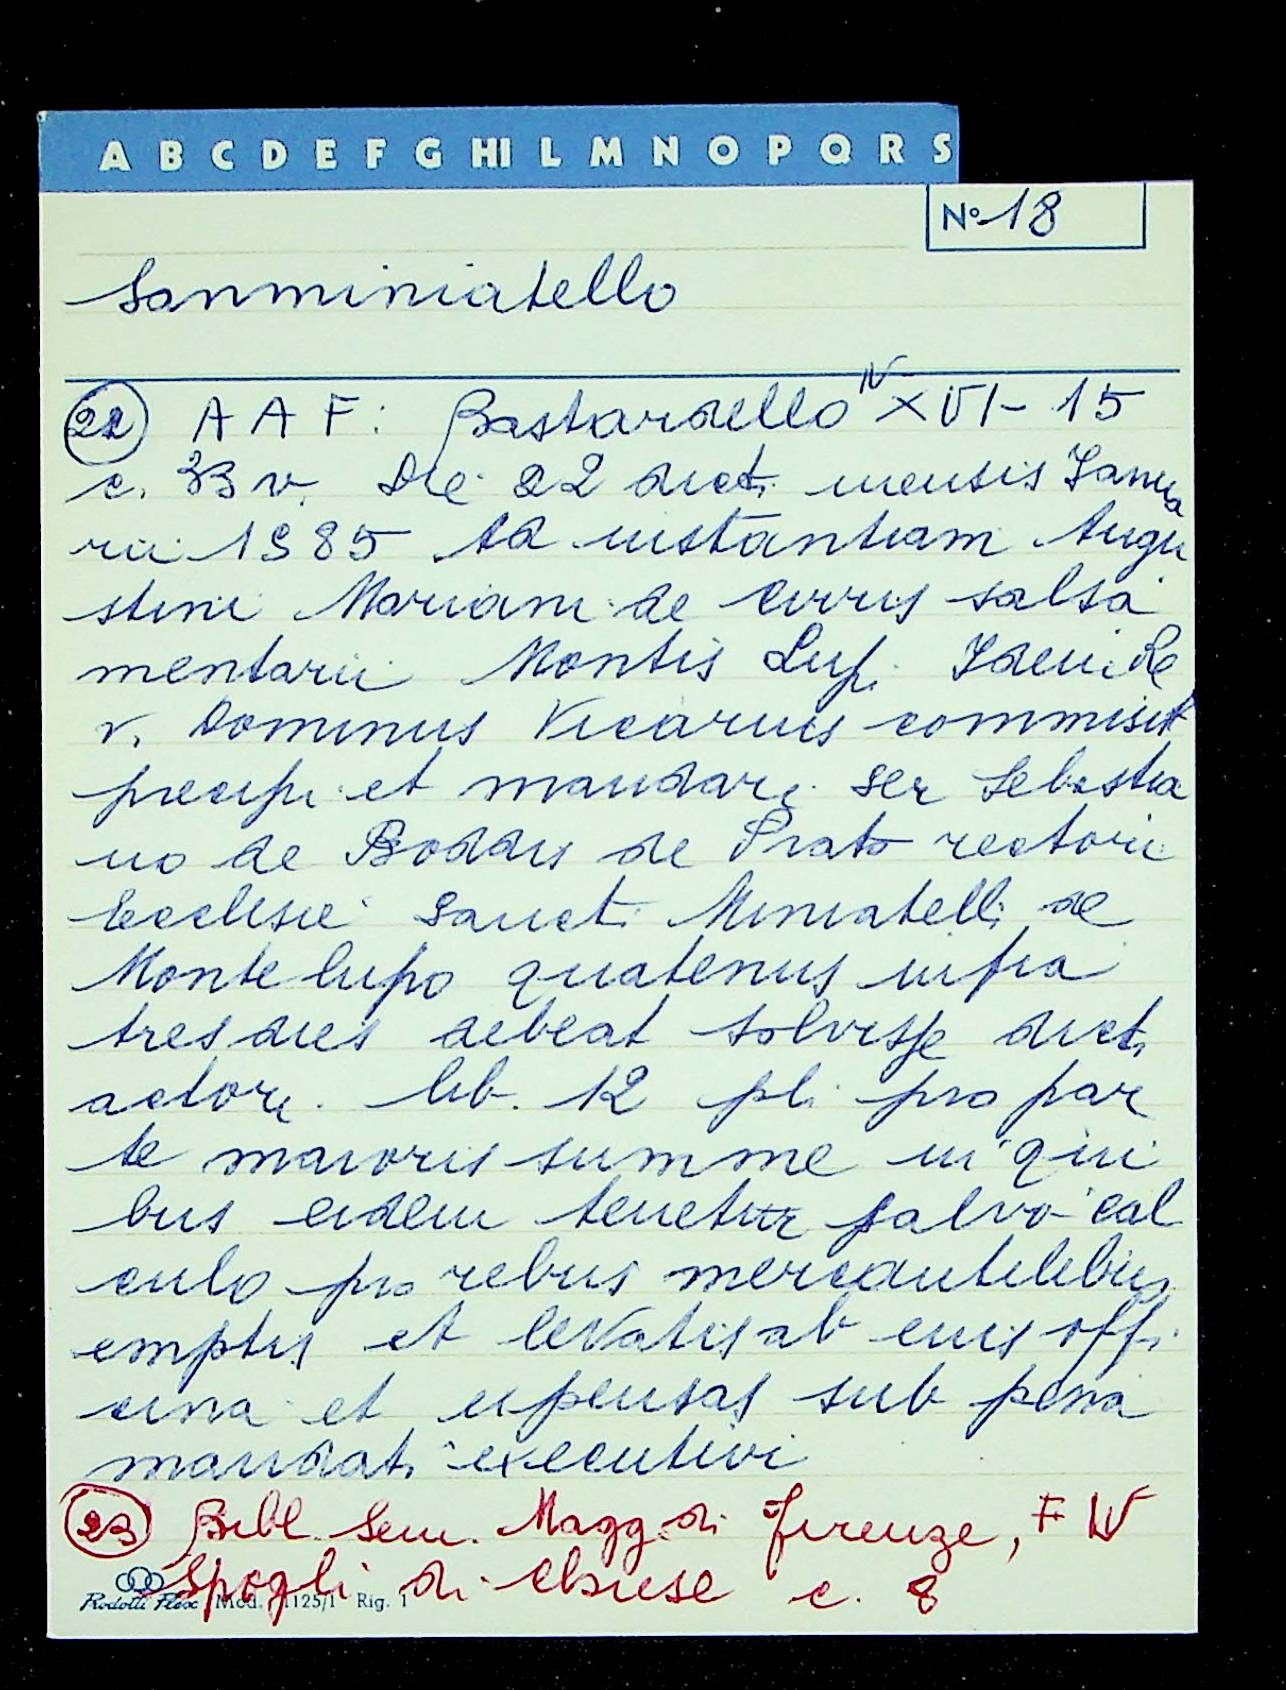 A B C D E F G HI L M N O P Q R S
N° 18
Sanminiatello
22 A A F: Bastardello IV XVI - 15
c. 33 v. Die 22 dicti mensis Janua
rii 1585 Ad instantiam Augu
stini Mariani de Cirris salsa
mentarii Montis Lup. Idem Re
v. Dominus Vicarius commisit
precipi et mandari ser Sebastia
no de Boddis de Prato rectori
Ecclesie Sancti Miniatelli de
Monte lupo quatenus infra
tres dies debeat solvisse dicti
actori lib. 12 pli pro par
te maioris summe in qui
bus eidem tenetur salvo cal
culo pro rebus mercantilibus
emptis et levatis ab eius offi
cina et expensas sub pena
mandati executivi
23 Bibl Sem. Magg. di Firenze, F IV
Spogli di chiese c. 8
Rodotti Flex Mod. 1125/1 Rig. 1